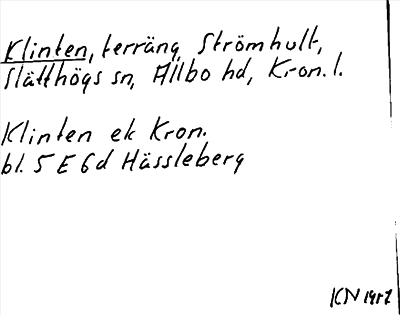 Klinten, terräng, Strömhult,
Slätthögs sn, Allbo hd, Kron. l.
Klinten ek Kron.
bl. 5 E 6d Hässleberg
KN